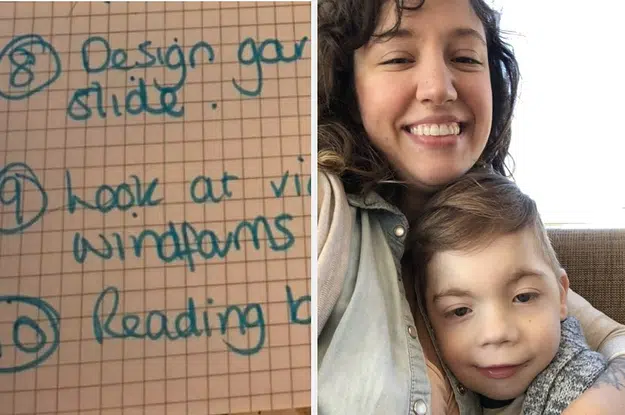 8 Design gar
slide.
9 Look at vi
windfarms
10 Reading b